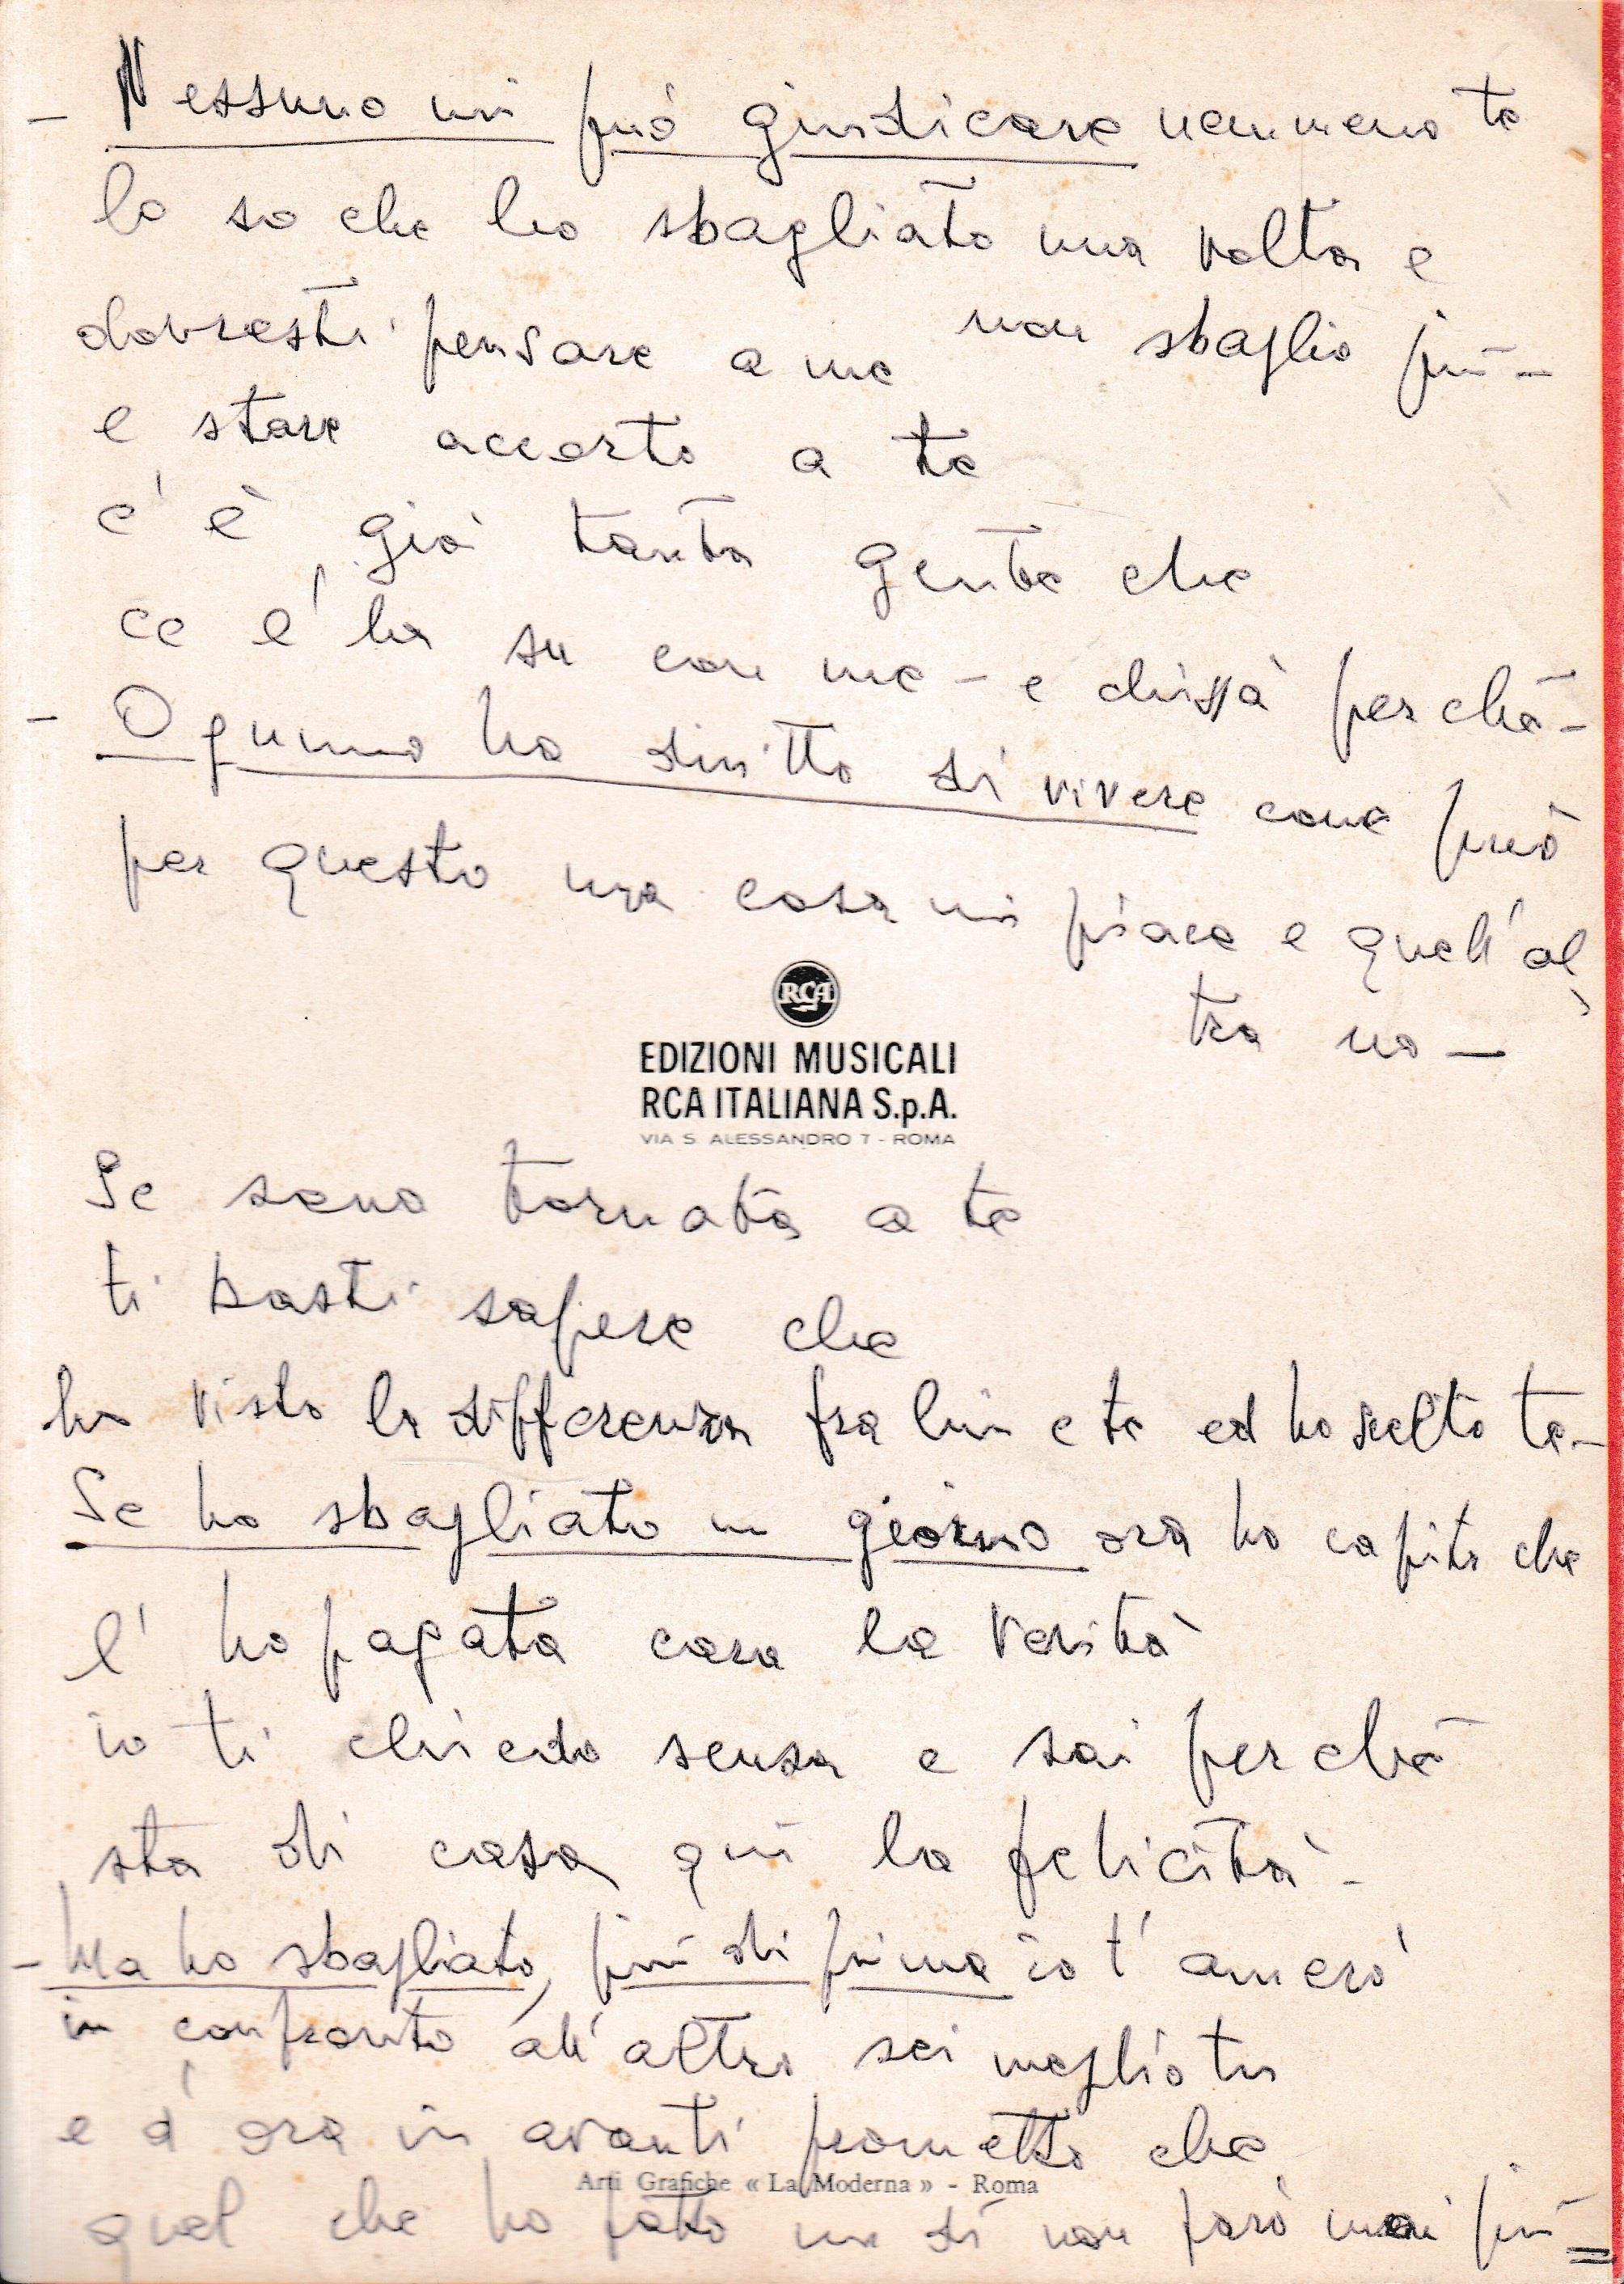 - Nessuno mi può giudicare nemmeno te
lo so che ho sbagliato una volta e
dovresti pensare a me non sbaglio più -
e stare accorto a te
c'è già tanta gente che
ce l'ha su con me - e chissà perchè -
- Ognuno ha diritto di vivere come può
per questo una cosa mi piace e quell'al
tra no -
RCA
EDIZIONI MUSICALI
RCA ITALIANA S.p.A.
VIA S. ALESSANDRO 7 - ROMA
Se sono tornata a te
ti basti sapere che
ho visto la differenza fra lui e te ed ho scelto te -
Se ho sbagliato un giorno ora ho capito che
l'ho pagata cara la verità
io ti chiedo scusa e sai perchè
sta di casa qui la felicità -
- Ma ho sbagliato, più di prima io t'amerò
in confronto all'altro sei meglio tu
e d'ora in avanti prometto che
Arti Grafiche « La Moderna » - Roma
quel che ho fatto un dì non farò mai più =